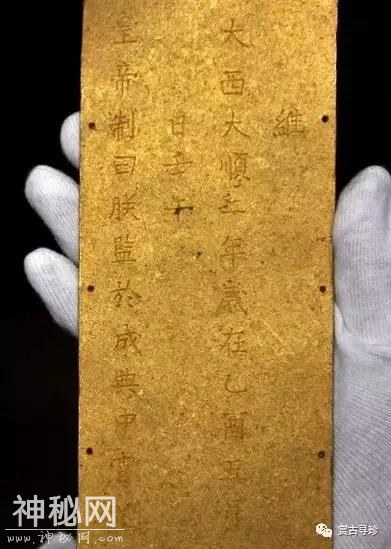 維
大西大順二年歲在乙酉五月
日壬午
皇帝制曰朕監於成典中宮
神秘网
www.神秘网.com
赏古寻珍